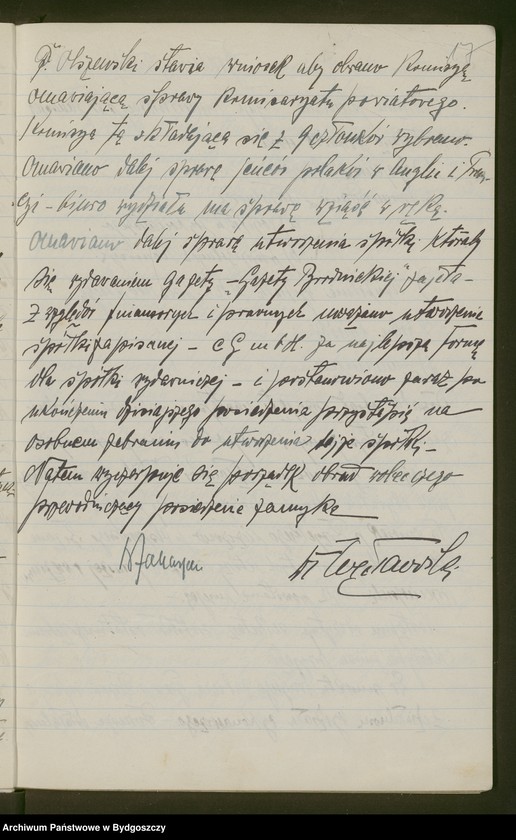 17
P. Olszewski stawia wniosek aby obrano Komisyą
omawiającą sprawy Komisaryatu powiatowego.
Komisyą tą składającą się z 9 członków wybrano.
Omawiano dalej sprawę jeńców polaków w Anglii i Fran-
cyi – biuro wydziału ma sprawę wziąść w ręką.
Omawiano dalej sprawę utworzenia spółki któraby
się wydawaniem gazety – Gazety Brodnickiej zajęła –
Z względów finansowych i prawnych uważano utworzenie
spółki zapisanej – e G m b H. za najlepszą formę
dla spółki wydawniczej – i postanowiono zaraz po
ukończeniu dzisiejszego posiedzenia przystąpić na
osobnem zebraniu do utworzenia tejże spółki –
Na tem wyczerpuje się porządek obrad wobec czego
przewodniczący posiedzenie zamyka –
Archiwum Państwowe w Bydgoszczy